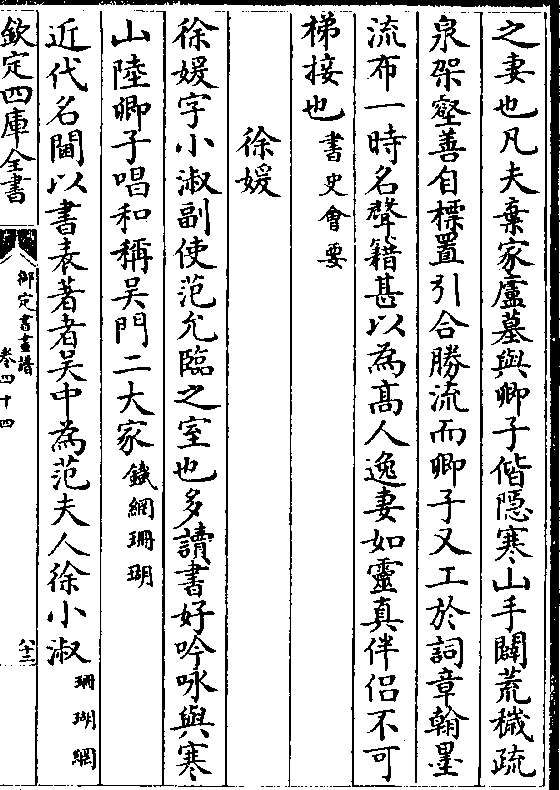 之妻也凡夫棄家廬墓與卿子偕隱寒山手闢荒穢疏
泉架壑善自標置引合勝流而卿子又工於詞章翰墨
流布一時名聲籍甚以為高人逸妻如靈真伴侣不可
梯接也書史會要
徐媛
徐媛字小淑副使范允臨之室也多讀書好吟咏與寒
山陸卿子唱和稱吳門二大家鐵網珊瑚
近代名閫以書表著者吳中為范夫人徐小淑珊瑚網
欽定四庫全書
御定書畫譜
卷四十四
八十二